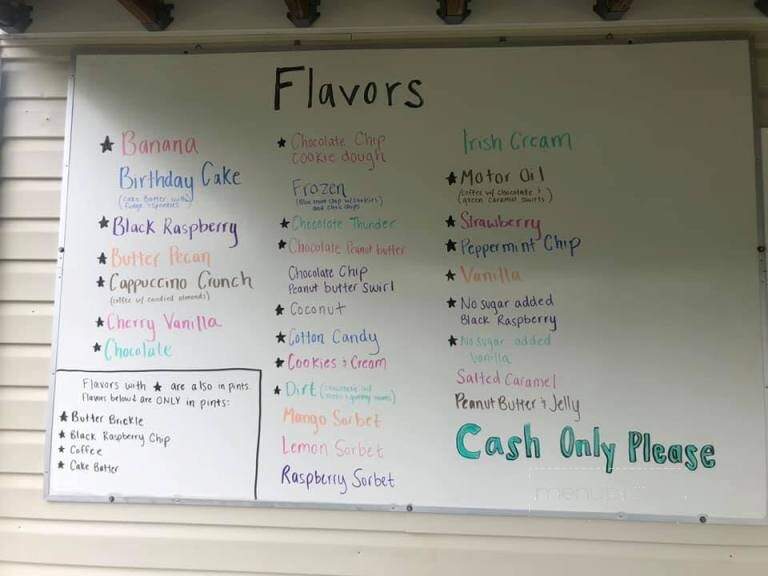 Flavors
★ Banana
Birthday Cake
(cake batter with
fudge + sprinkles)
★ Black Raspberry
★ Butter Pecan
★ Cappuccino Crunch
(coffee w/ candied almonds)
★ Cherry Vanilla
★ Chocolate
Flavors with ★ are also in pints.
Flavors below are ONLY in pints:
★ Butter Brickle
★ Black Raspberry Chip
★ Coffee
★ Cake Batter
★ Chocolate Chip
cookie dough
Frozen
(Blue mint chip w/ cookies
and choc chips)
★ Chocolate Thunder
★ Chocolate Peanut butter
Chocolate Chip
Peanut butter swirl
★ Coconut
★ Cotton Candy
★ Cookies + Cream
★ Dirt (chocolate w/
oreos + gummy worms)
Mango Sorbet
Lemon Sorbet
Raspberry Sorbet
Irish Cream
★ Motor Oil
(coffee w/ chocolate +
green caramel swirls)
★ Strawberry
★ Peppermint Chip
★ Vanilla
★ No sugar added
Black Raspberry
★ No sugar added
Vanilla
Salted Caramel
Peanut Butter + Jelly
Cash Only Please